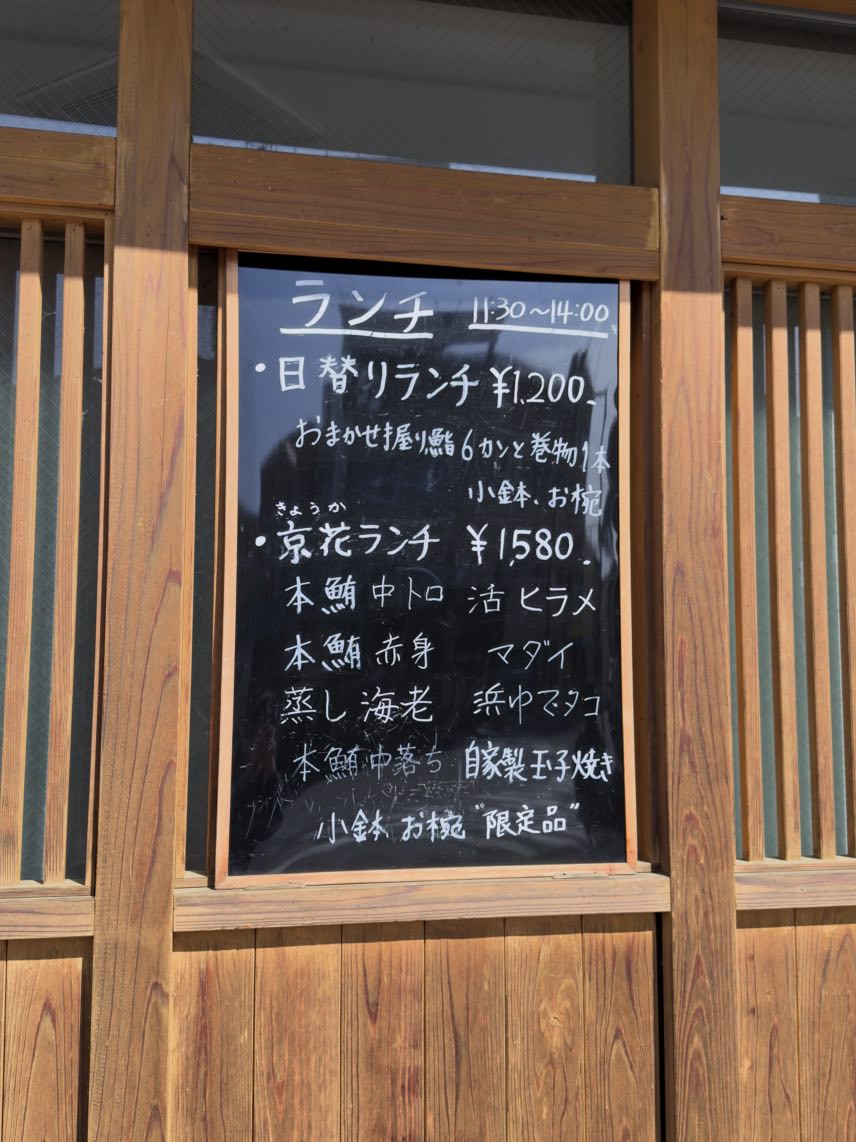 ランチ 11:30〜14:00
・日替りランチ ¥1,200-
おまかせ握り鮨6カンと巻物1本
小鉢、お椀
きょうか
・京花ランチ ¥1,580-
本鮪中トロ 活ヒラメ
本鮪赤身 マダイ
蒸し海老 浜ゆでタコ
本鮪中落ち 自家製玉子焼き
小鉢 お椀 "限定品"